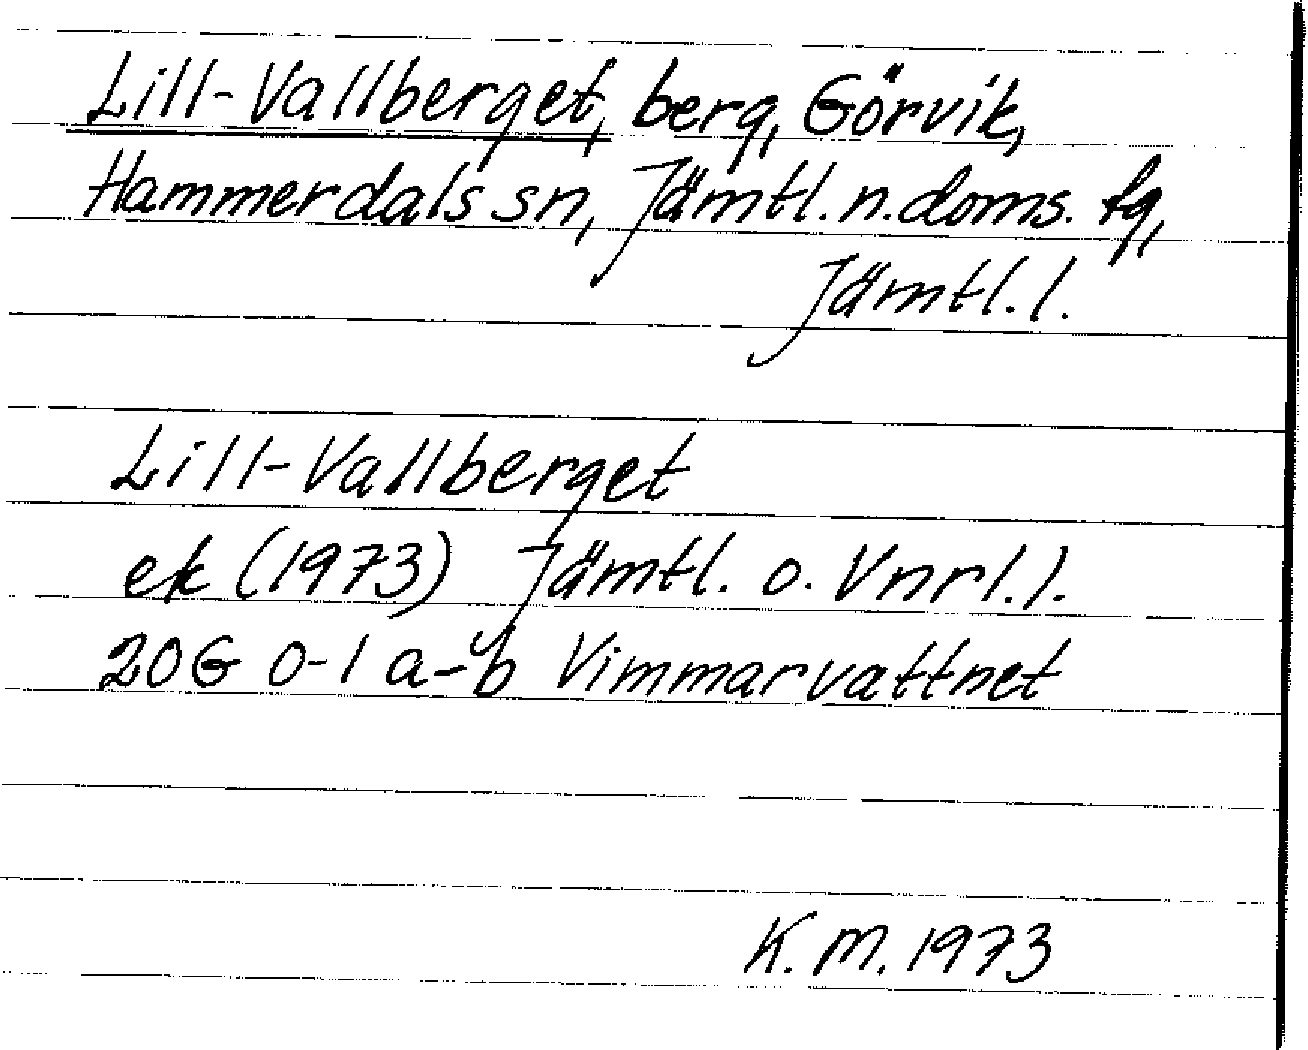 Lill-Vallberget, berg, Görvik,
Hammerdals sn, Jämtl. n. doms. fg,
Jämtl. l.
Lill-Vallberget
ek (1973) Jämtl. o. Vnrl. l.
20G 0-1 a-b Vimmarvattnet
K. M. 1973